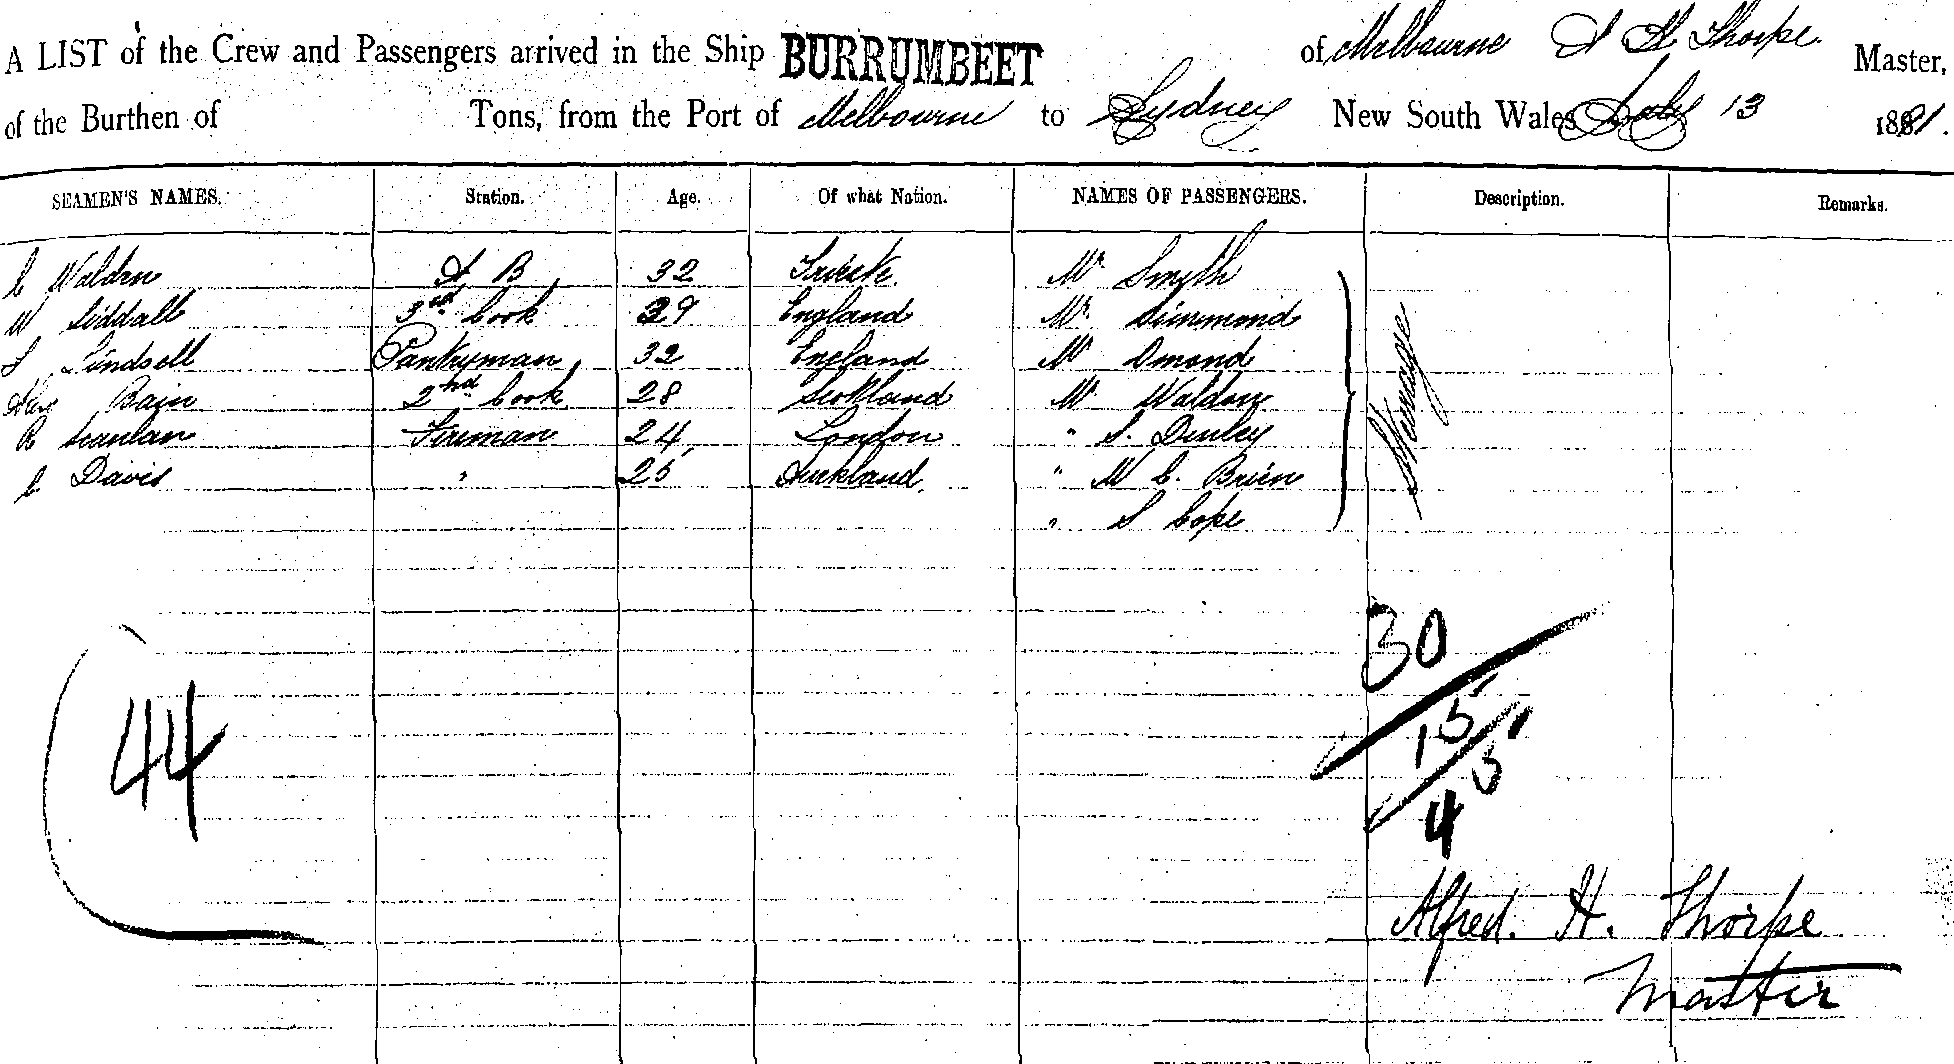 A LIST of the Crew and Passengers arrived in the Ship BURRUMBEET of Melbourne A H Thorpe Master,
of the Burthen of Tons, from the Port of Melbourne to Sydney New South Wales July 13 1881.
SEAMEN'S NAMES. Station. Age. Of what Nation. NAMES OF PASSENGERS. Description. Remarks.
C Waldon A B 32 Trieste Mr Smyth
W Siddall 3rd Cook 29 England Mr Drummond
Lindsell Pantryman 32 England Mr Omond
Bain 2nd Cook 28 Scotland Mr Waldon
R Scanlan Fireman 24 London " S. Denley
C Davis " 25 Auckland " W C. Brien
" S Cope
Steerage
30
15
5
4
44
Alfred. H. Thorpe
Master